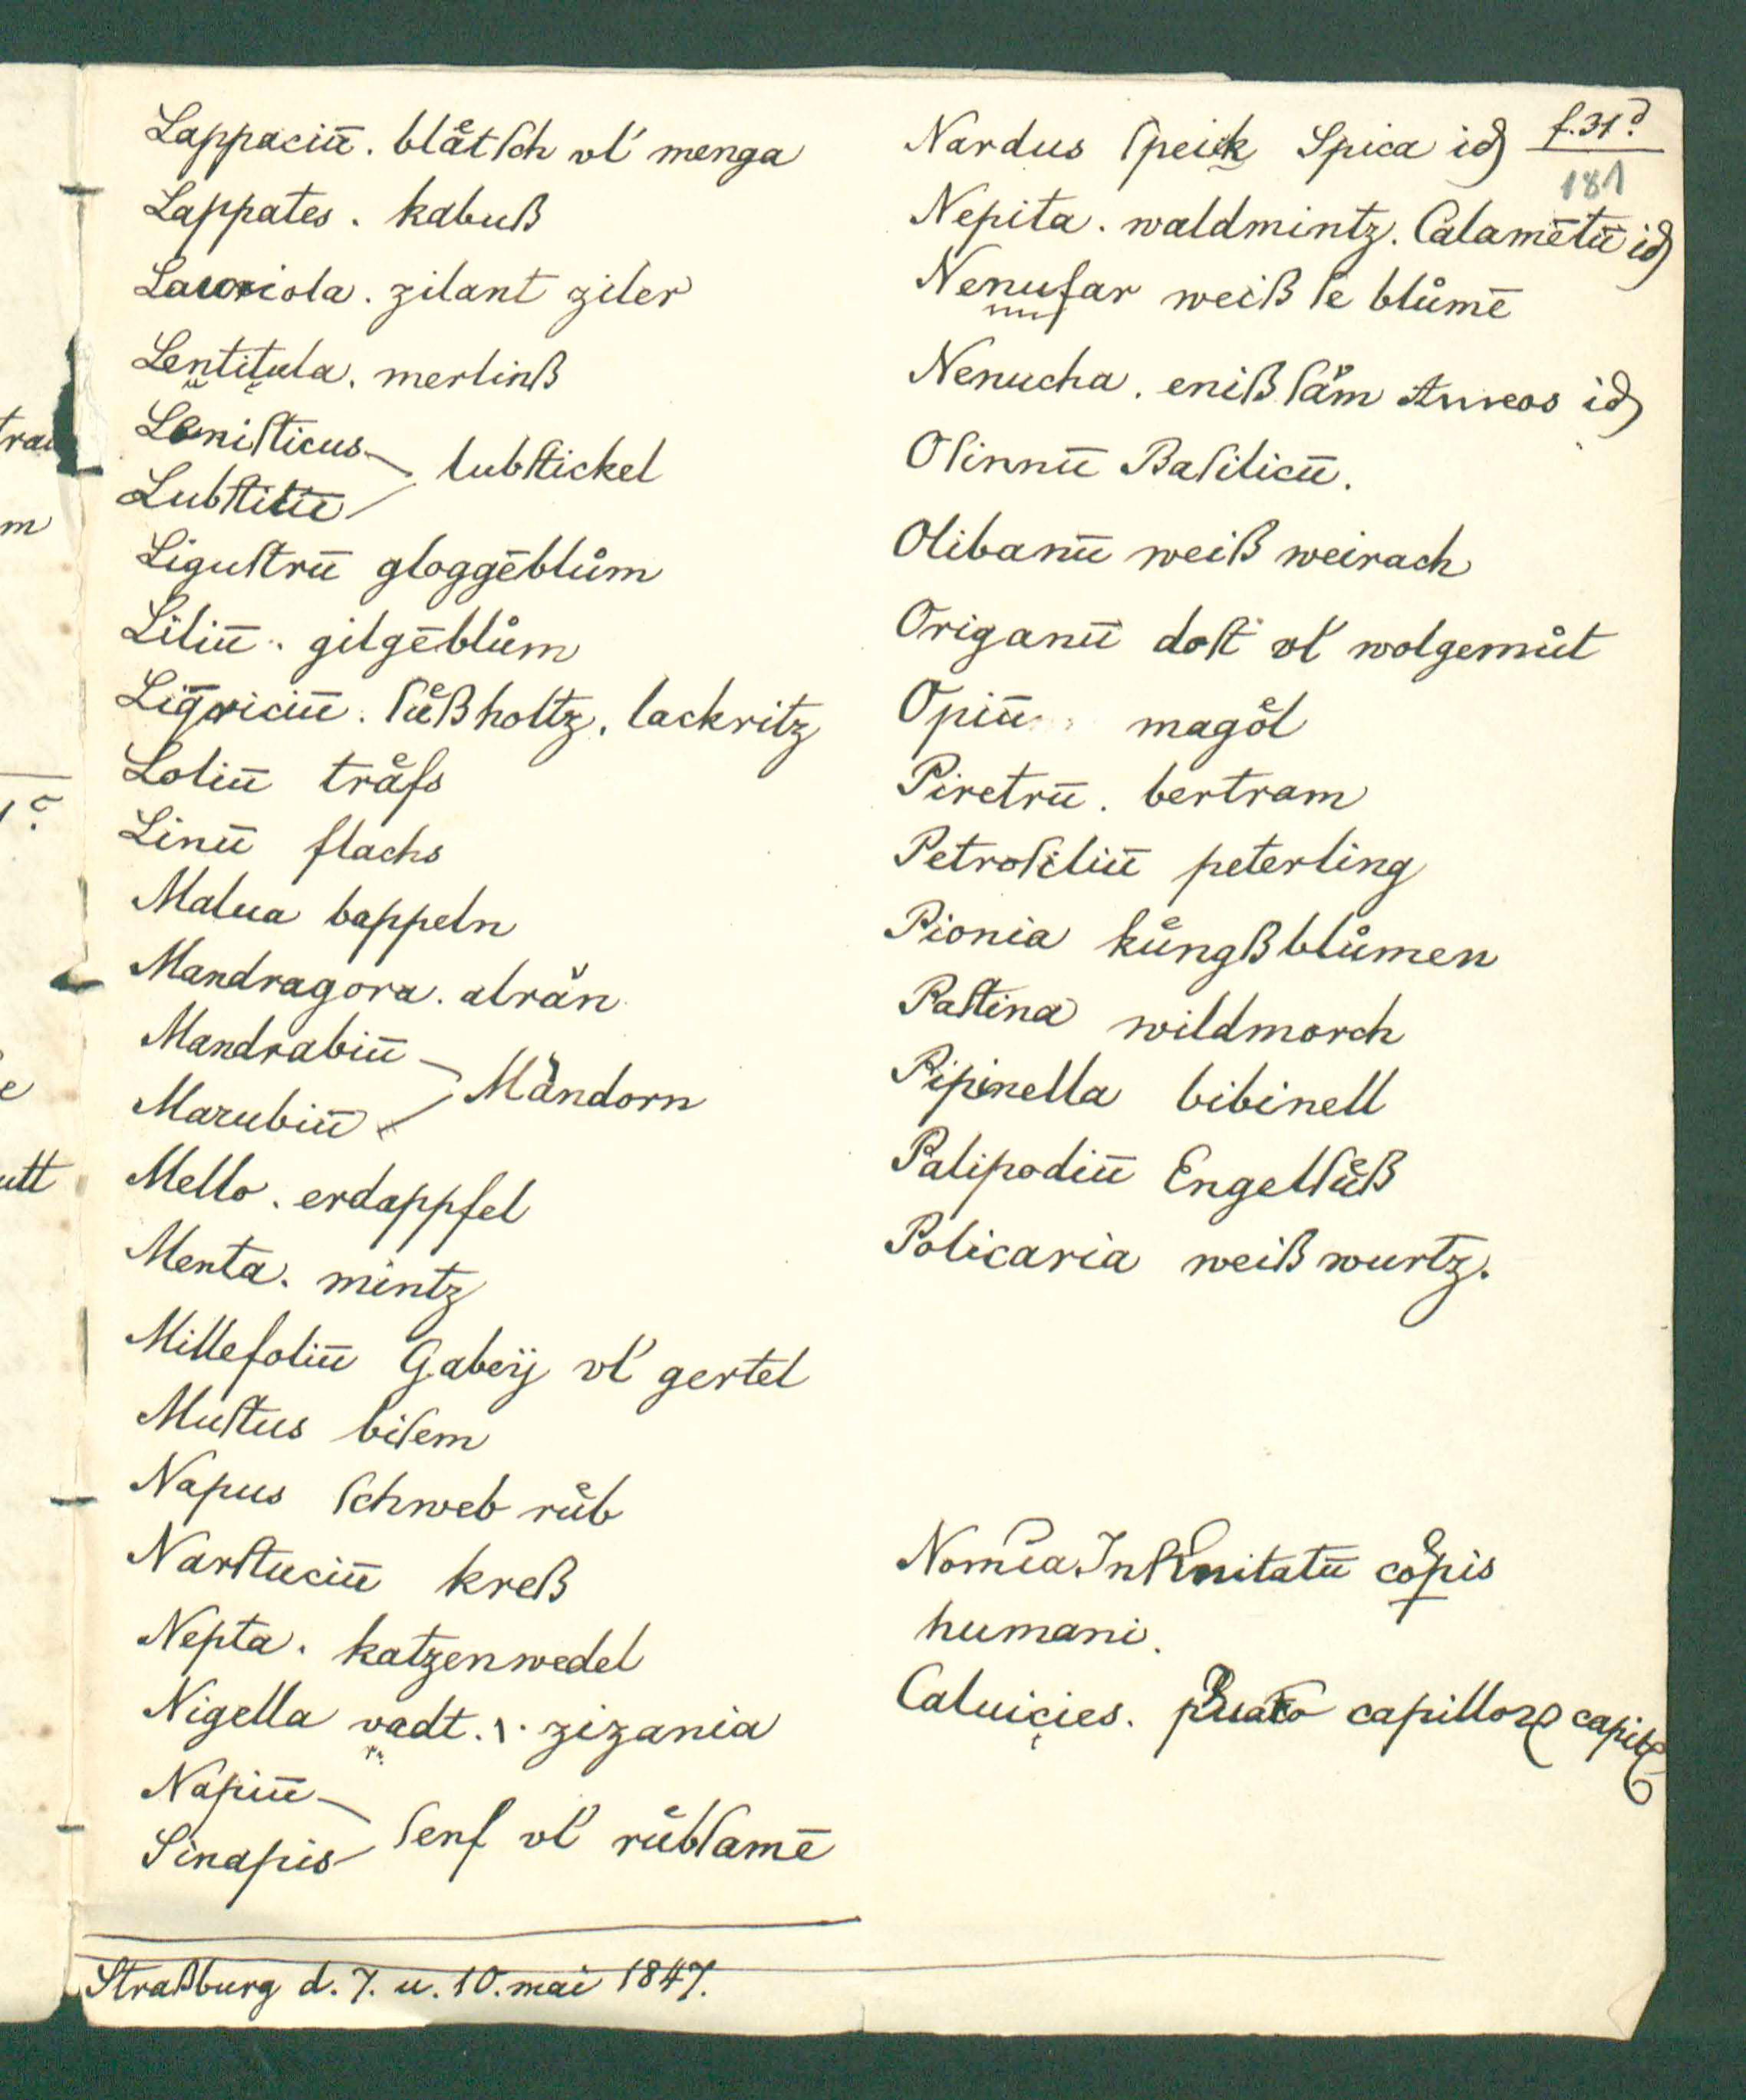 Lappaciū. blåtſch vl' menga
Lappates. kabuß
Lauriola. zilant ziler
Lentitula. merlinß
Leniſticus
lubſtickel
Lubſtitū
Liguſtrū gloggēblům
Liliū. gilgēblům
Liqͥriciū. ſuͤßholtz. lackritz
Loliū traͤfs
Linū flachs
Malua bappeln
Mandragora. alrän
Mandrabiū
Mändorn
Marubiū
Mello. erdappfel
Menta. mintz
Millefoliū Gabeÿ vl' gertel
Muſtus biſem
Napus ſchweb ruͤb
Narſtuciū kreß
Nepta. katzenwedel
Nigella vadt. ı. zizania
Napiū
ſenf vl' ruͤbſamē
Sinapis
Straßburg d. 7. u. 10. mai 1847.
f. 31.d
181
Nardus ſpeik Spica id
Nepita. waldmintz. Calamētū id
Nenufar weiß ſe blůmē
Nenucha. eniß ſäm id
Oſinnū Baſilicū.
Olibanū weiß weirach
Origanū doſt vl' wolgemůt
Opiū magoͤl
Piretrū. bertram
Petroſiliū peterling
Pionia kuͤngßblůmen
Paſtina wildmorch
Pipinella bibinell
Palipodiū Engelſuͤß
Policaria weiß wurtz.
Nomīa Infirmitatū coꝑis
humani.
Caluicies. capilloꝝ capitꝭ